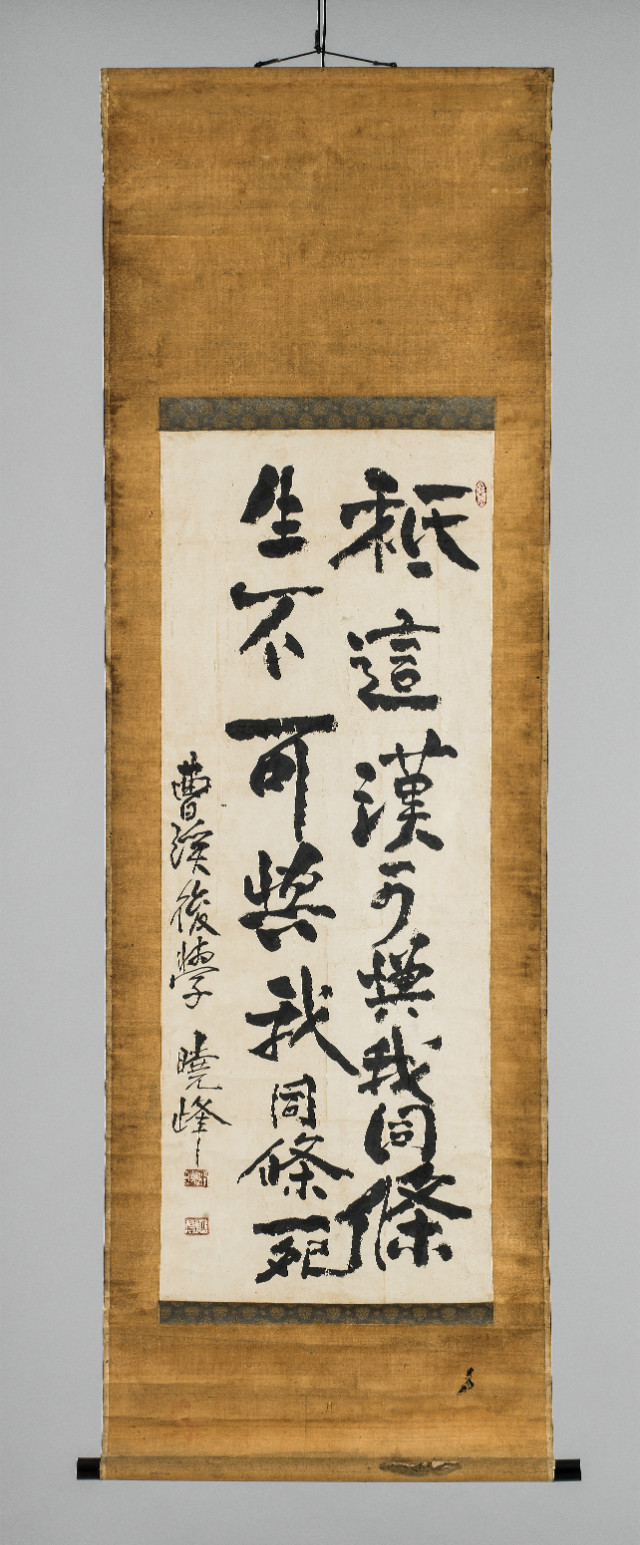 秖這漢可與我同條
生不可與我同條死
曹溪後學 曉峰